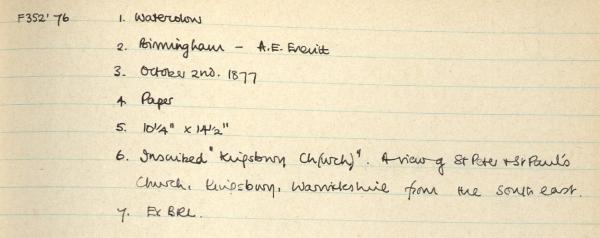 F352' 76 1. Watercolour
2. Birmingham – A.E. Everitt
3. October 2nd. 1877
4. Paper
5. 10¼" x 14½"
6. Inscribed "Kingsbury Ch(urch)". A view of St Peter + St Paul's
Church, Kingsbury, Warwickshire from the south east.
7. Ex BRL.